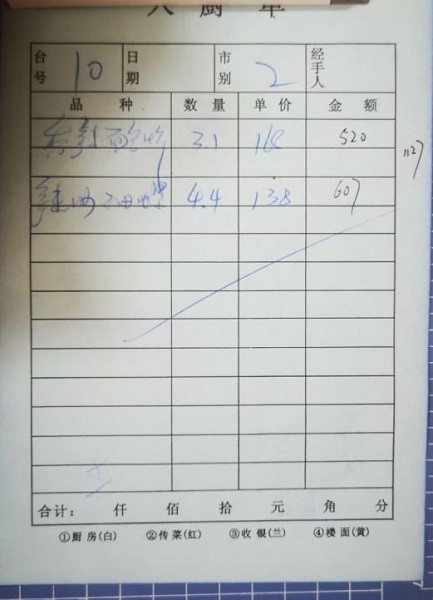 入厨单
台号 10 日期 市别 2 经手人
品种 数量 单价 金额
3.1 168 520
1127
4.4 138 607
合计： 仟 佰 拾 元 角 分
①厨房(白) ②传菜(红) ③收银(兰) ④楼面(黄)